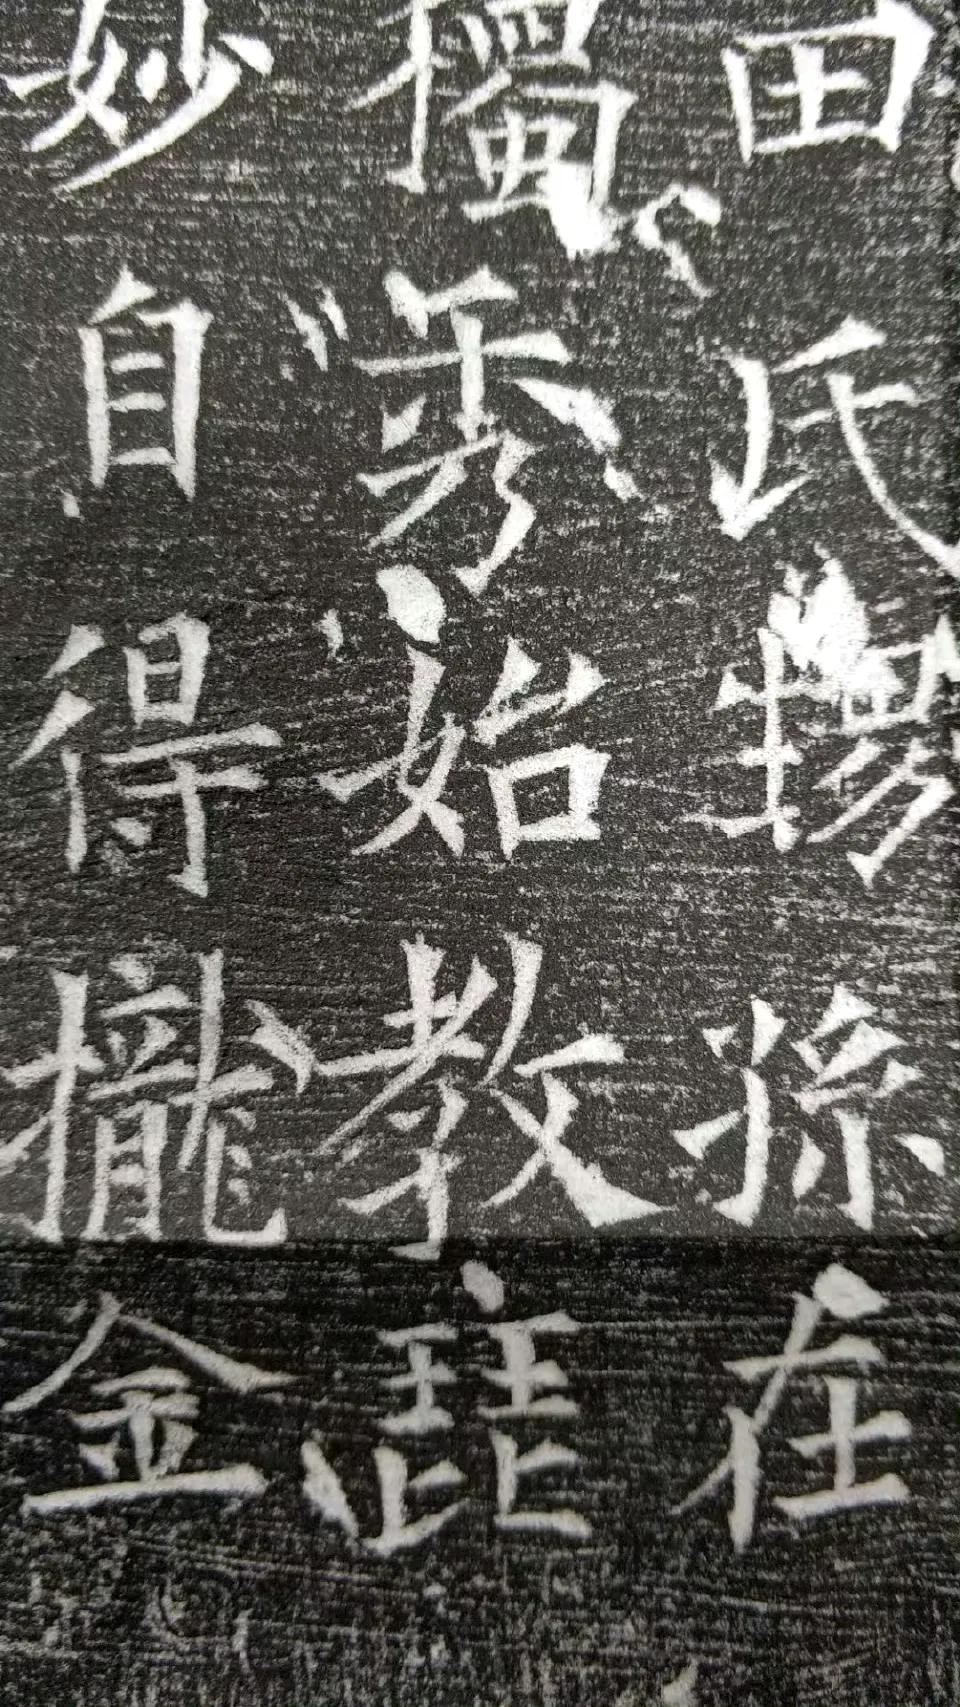 田氏甥孫在
獨秀始教琵
妙自得攏金